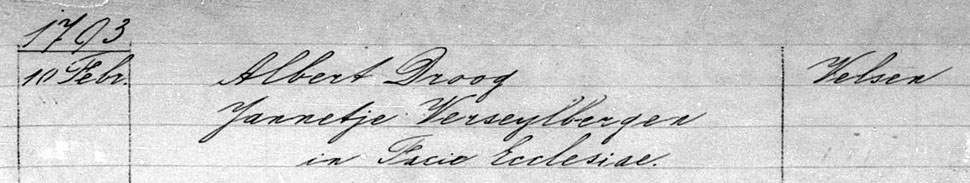 1793
10 Febr. Albert Droog Velsen
Jannetje Verseylbergen
in Facie Ecclesiae.